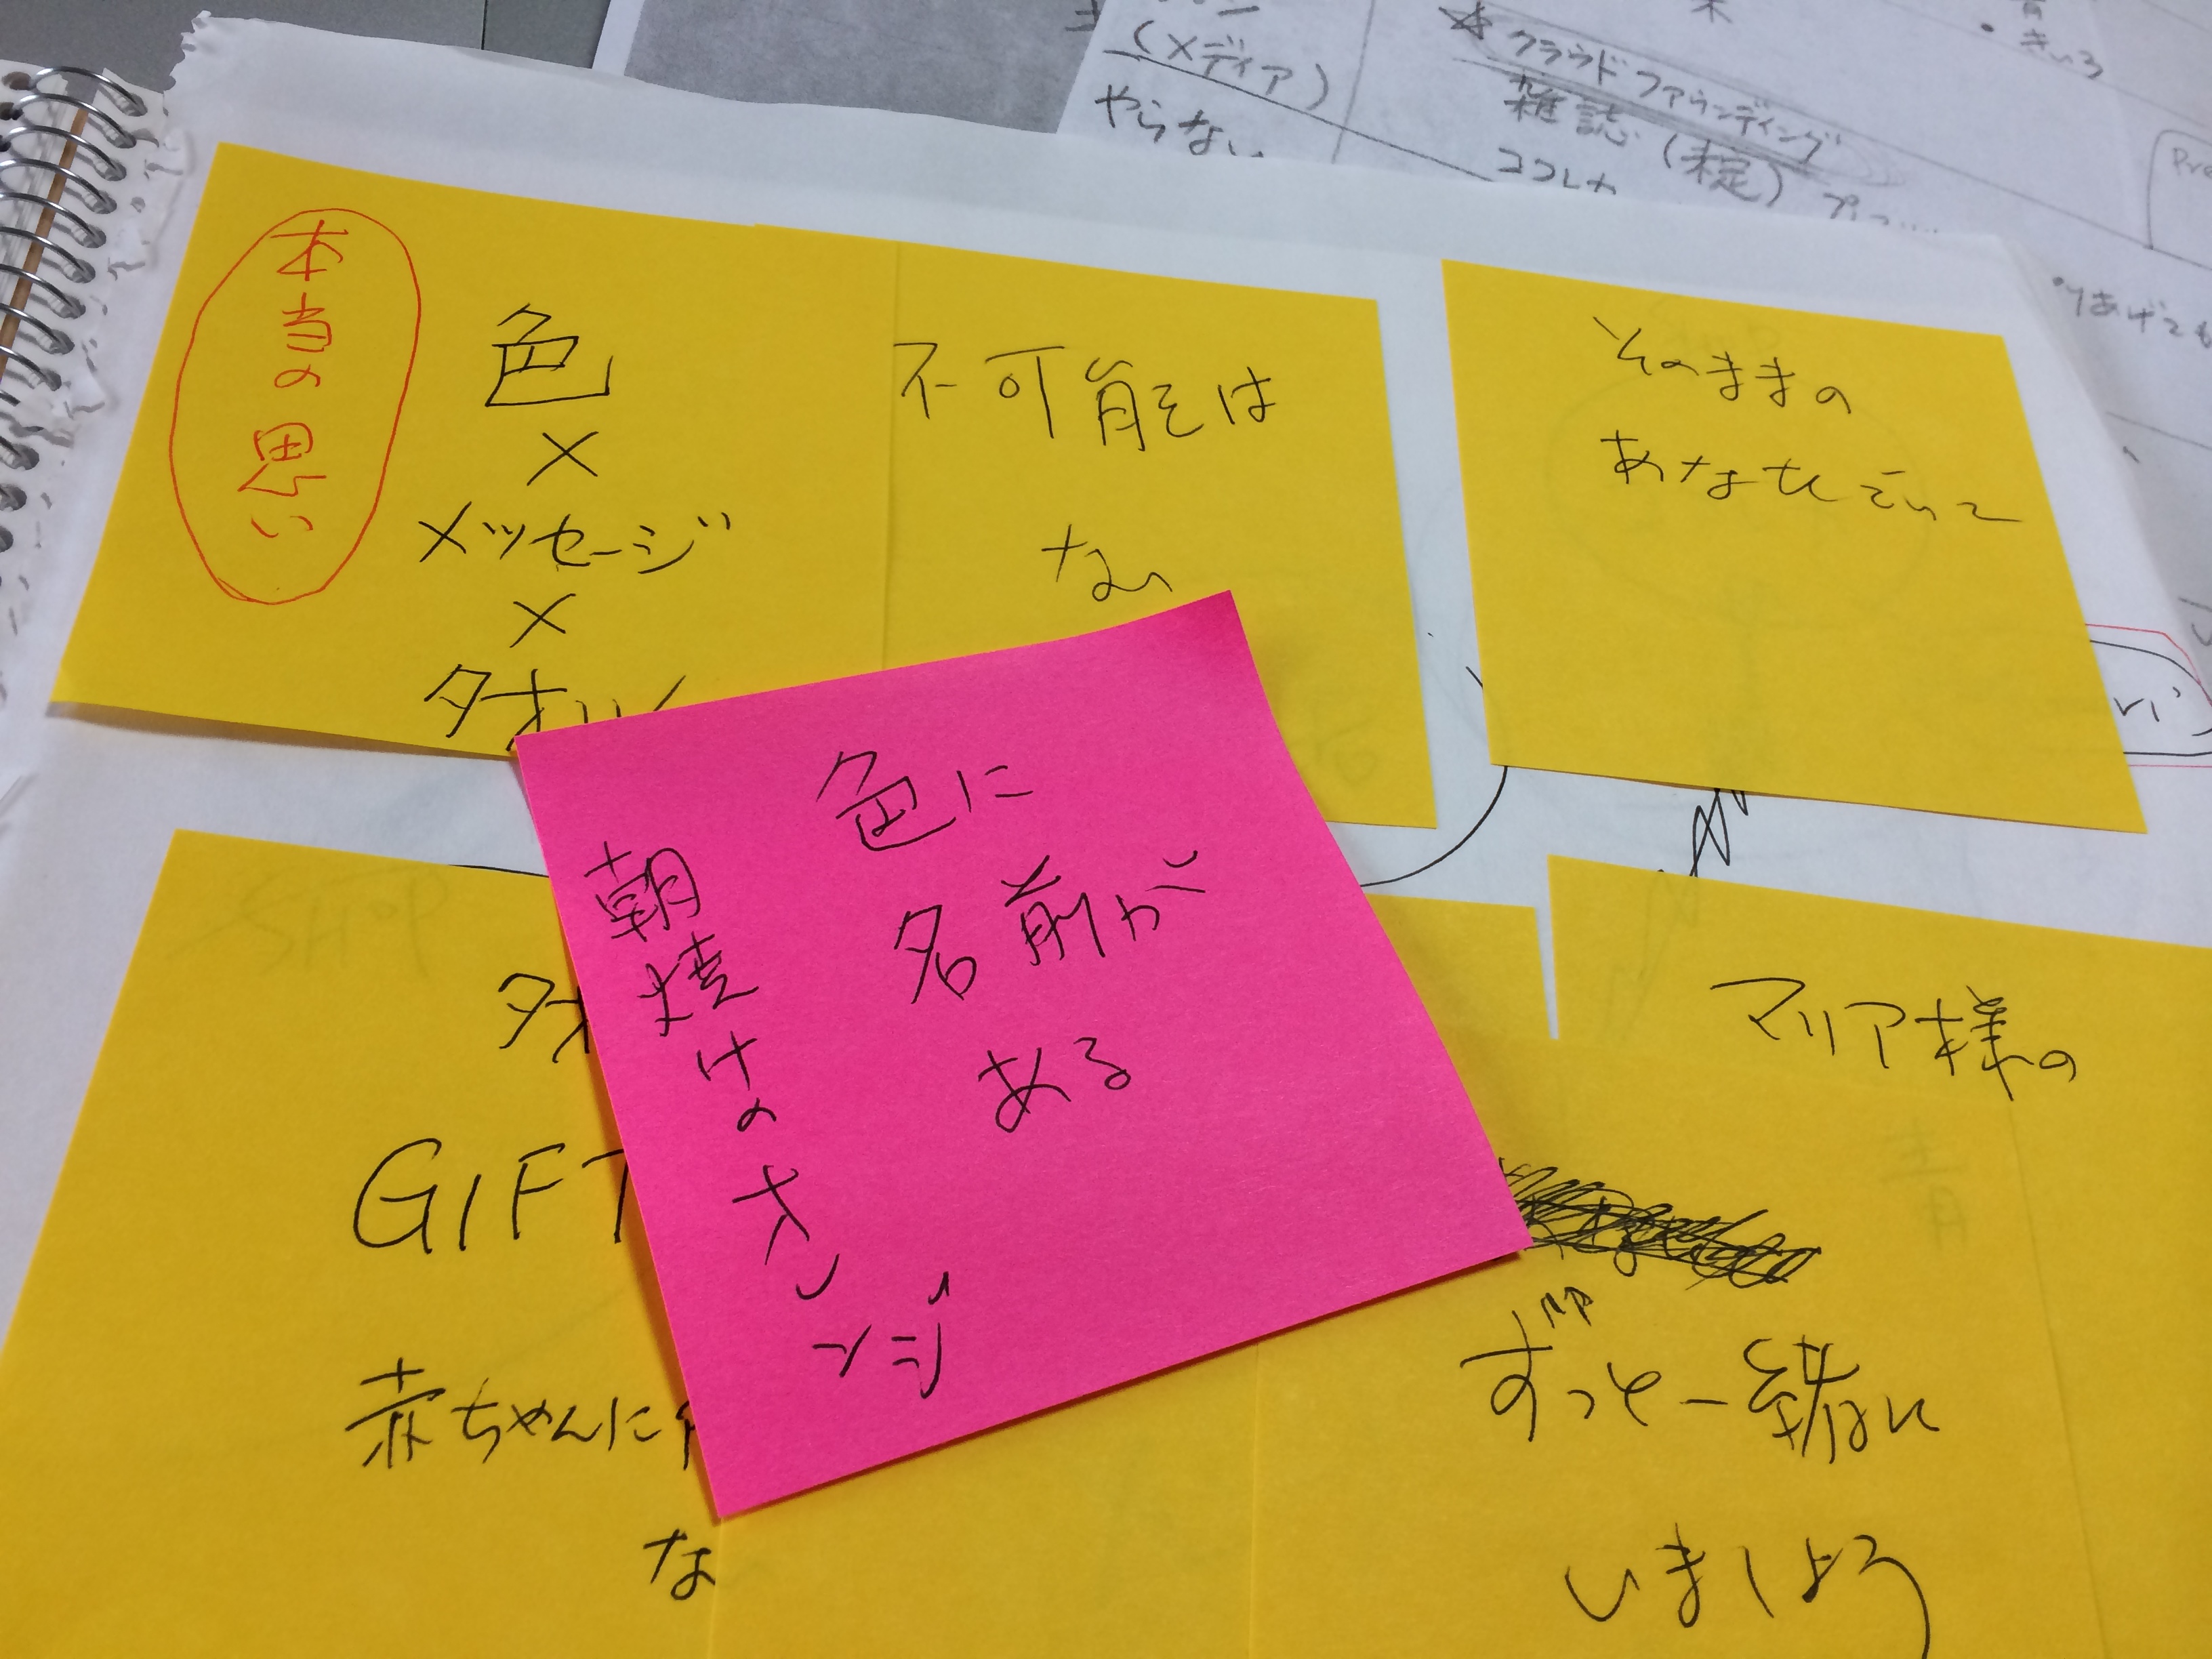 (メディア)
やらない
クラウドファウンディング
雑誌(未定)
きいろ
本当の思い
色
×
メッセージ
×
タオル
不可能は
ない
そのままの
あなたでいて
色に
名前が
ある
朝焼けのオレンジ
GIFT
赤ちゃんに
な
マリア様の
ずっと一緒に
いましょう